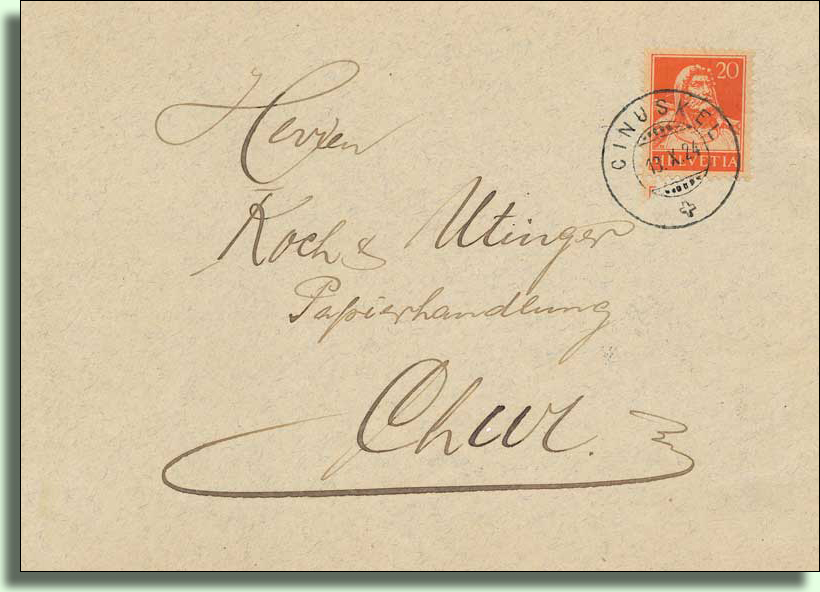 20
HELVETIA
CINUSKEL
13.X.24
Herren
Koch & Utinger
Papierhandlung
Chur.